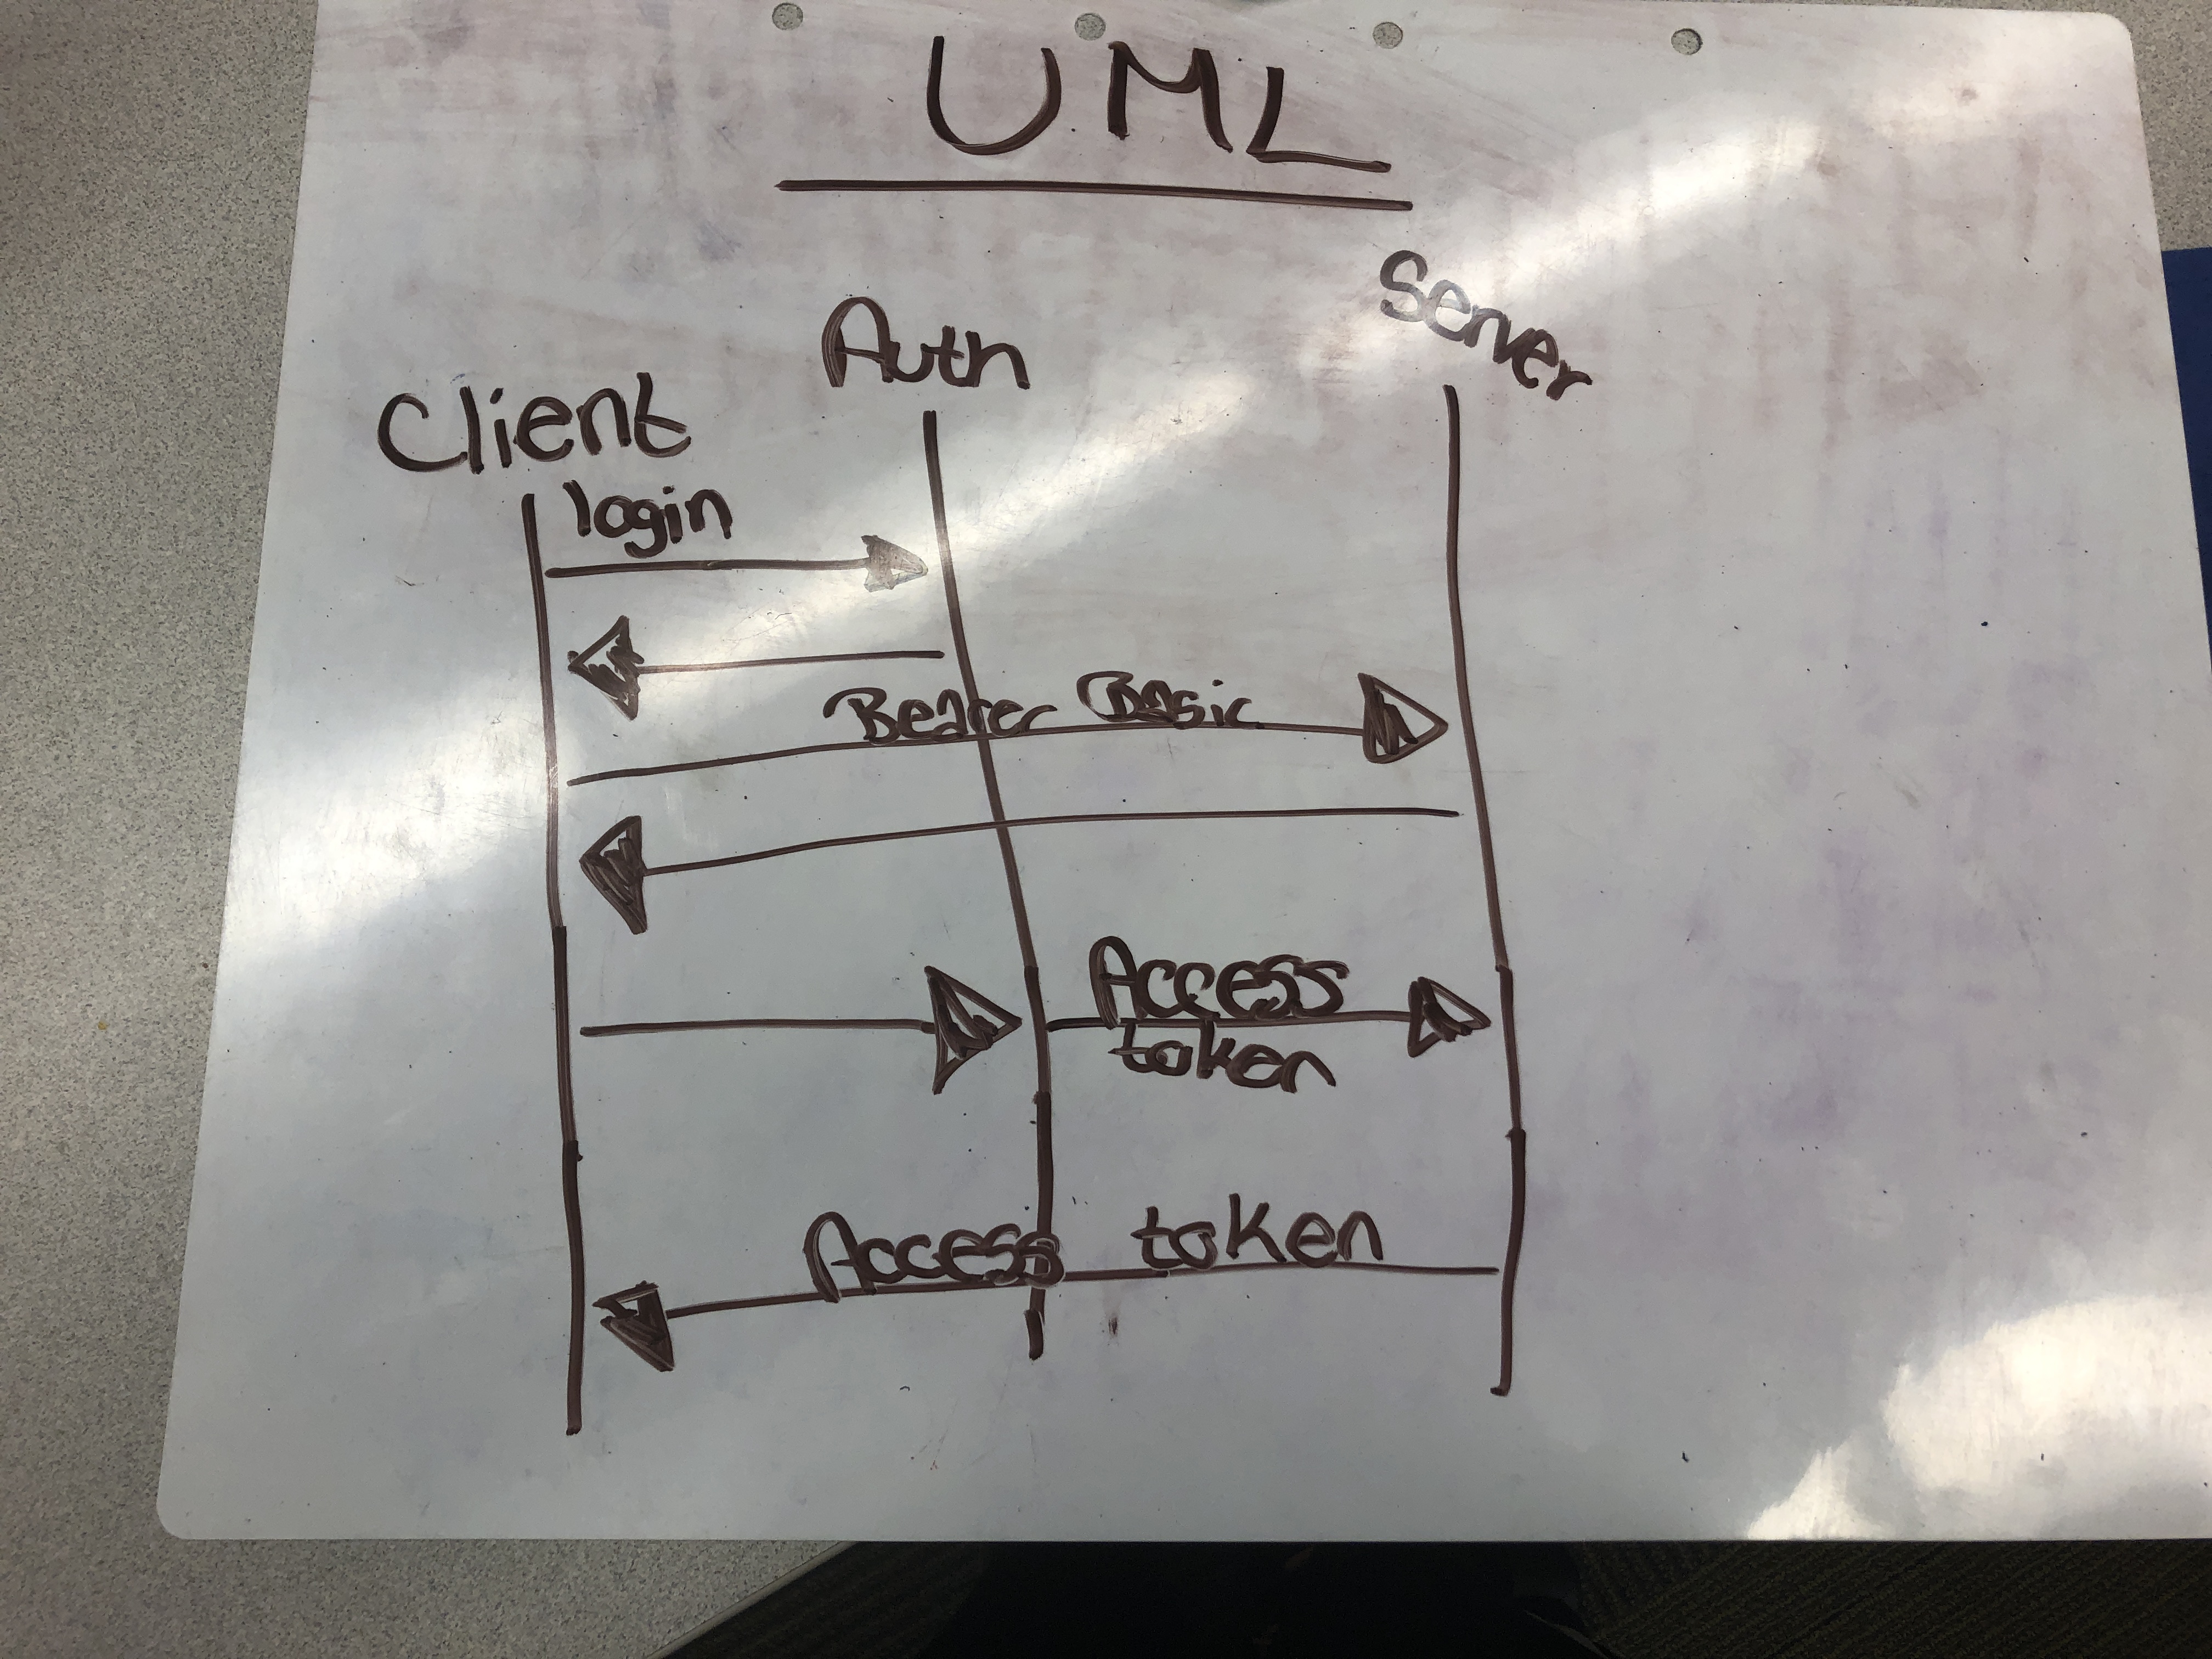 UML
Client Auth Server
login
Bearer Basic
Access
token
Access token